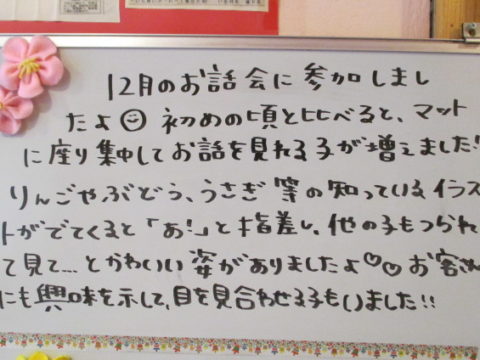 12月のお話会に参加しまし
たよ☺ 初めの頃と比べると、マット
に座り集中してお話を見れる子が増えました!
りんごやぶどう、うさぎ等の知っているイラス
トがでてくると「あ!」と指差し、他の子もつられ
て見て…とかわいい姿がありましたよ♡♡ お客さん
にも興味を示して、目を見合わせる子もいました!!